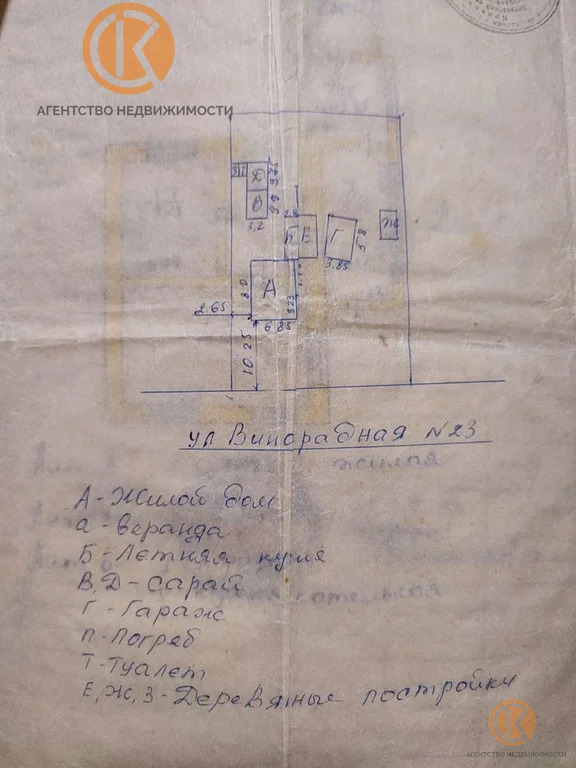 АГЕНТСТВО НЕДВИЖИМОСТИ
Д 3.65
В 3.9
3,2
2.8
Б Е
Г 5.8
3.85
Ж
А
8.0
3.23
2.65
6.85
10.25
ул Винорадная N23
жилая
А - Жилой дом
а - веранда
Б - Летняя кухя
В, Д - Сарай
Г - Гараж
котельная
П - Погреб
Т - Туалет
Е, Ж, З - Деревяные постройки
АГЕНТСТВО НЕДВИЖИМОСТИ